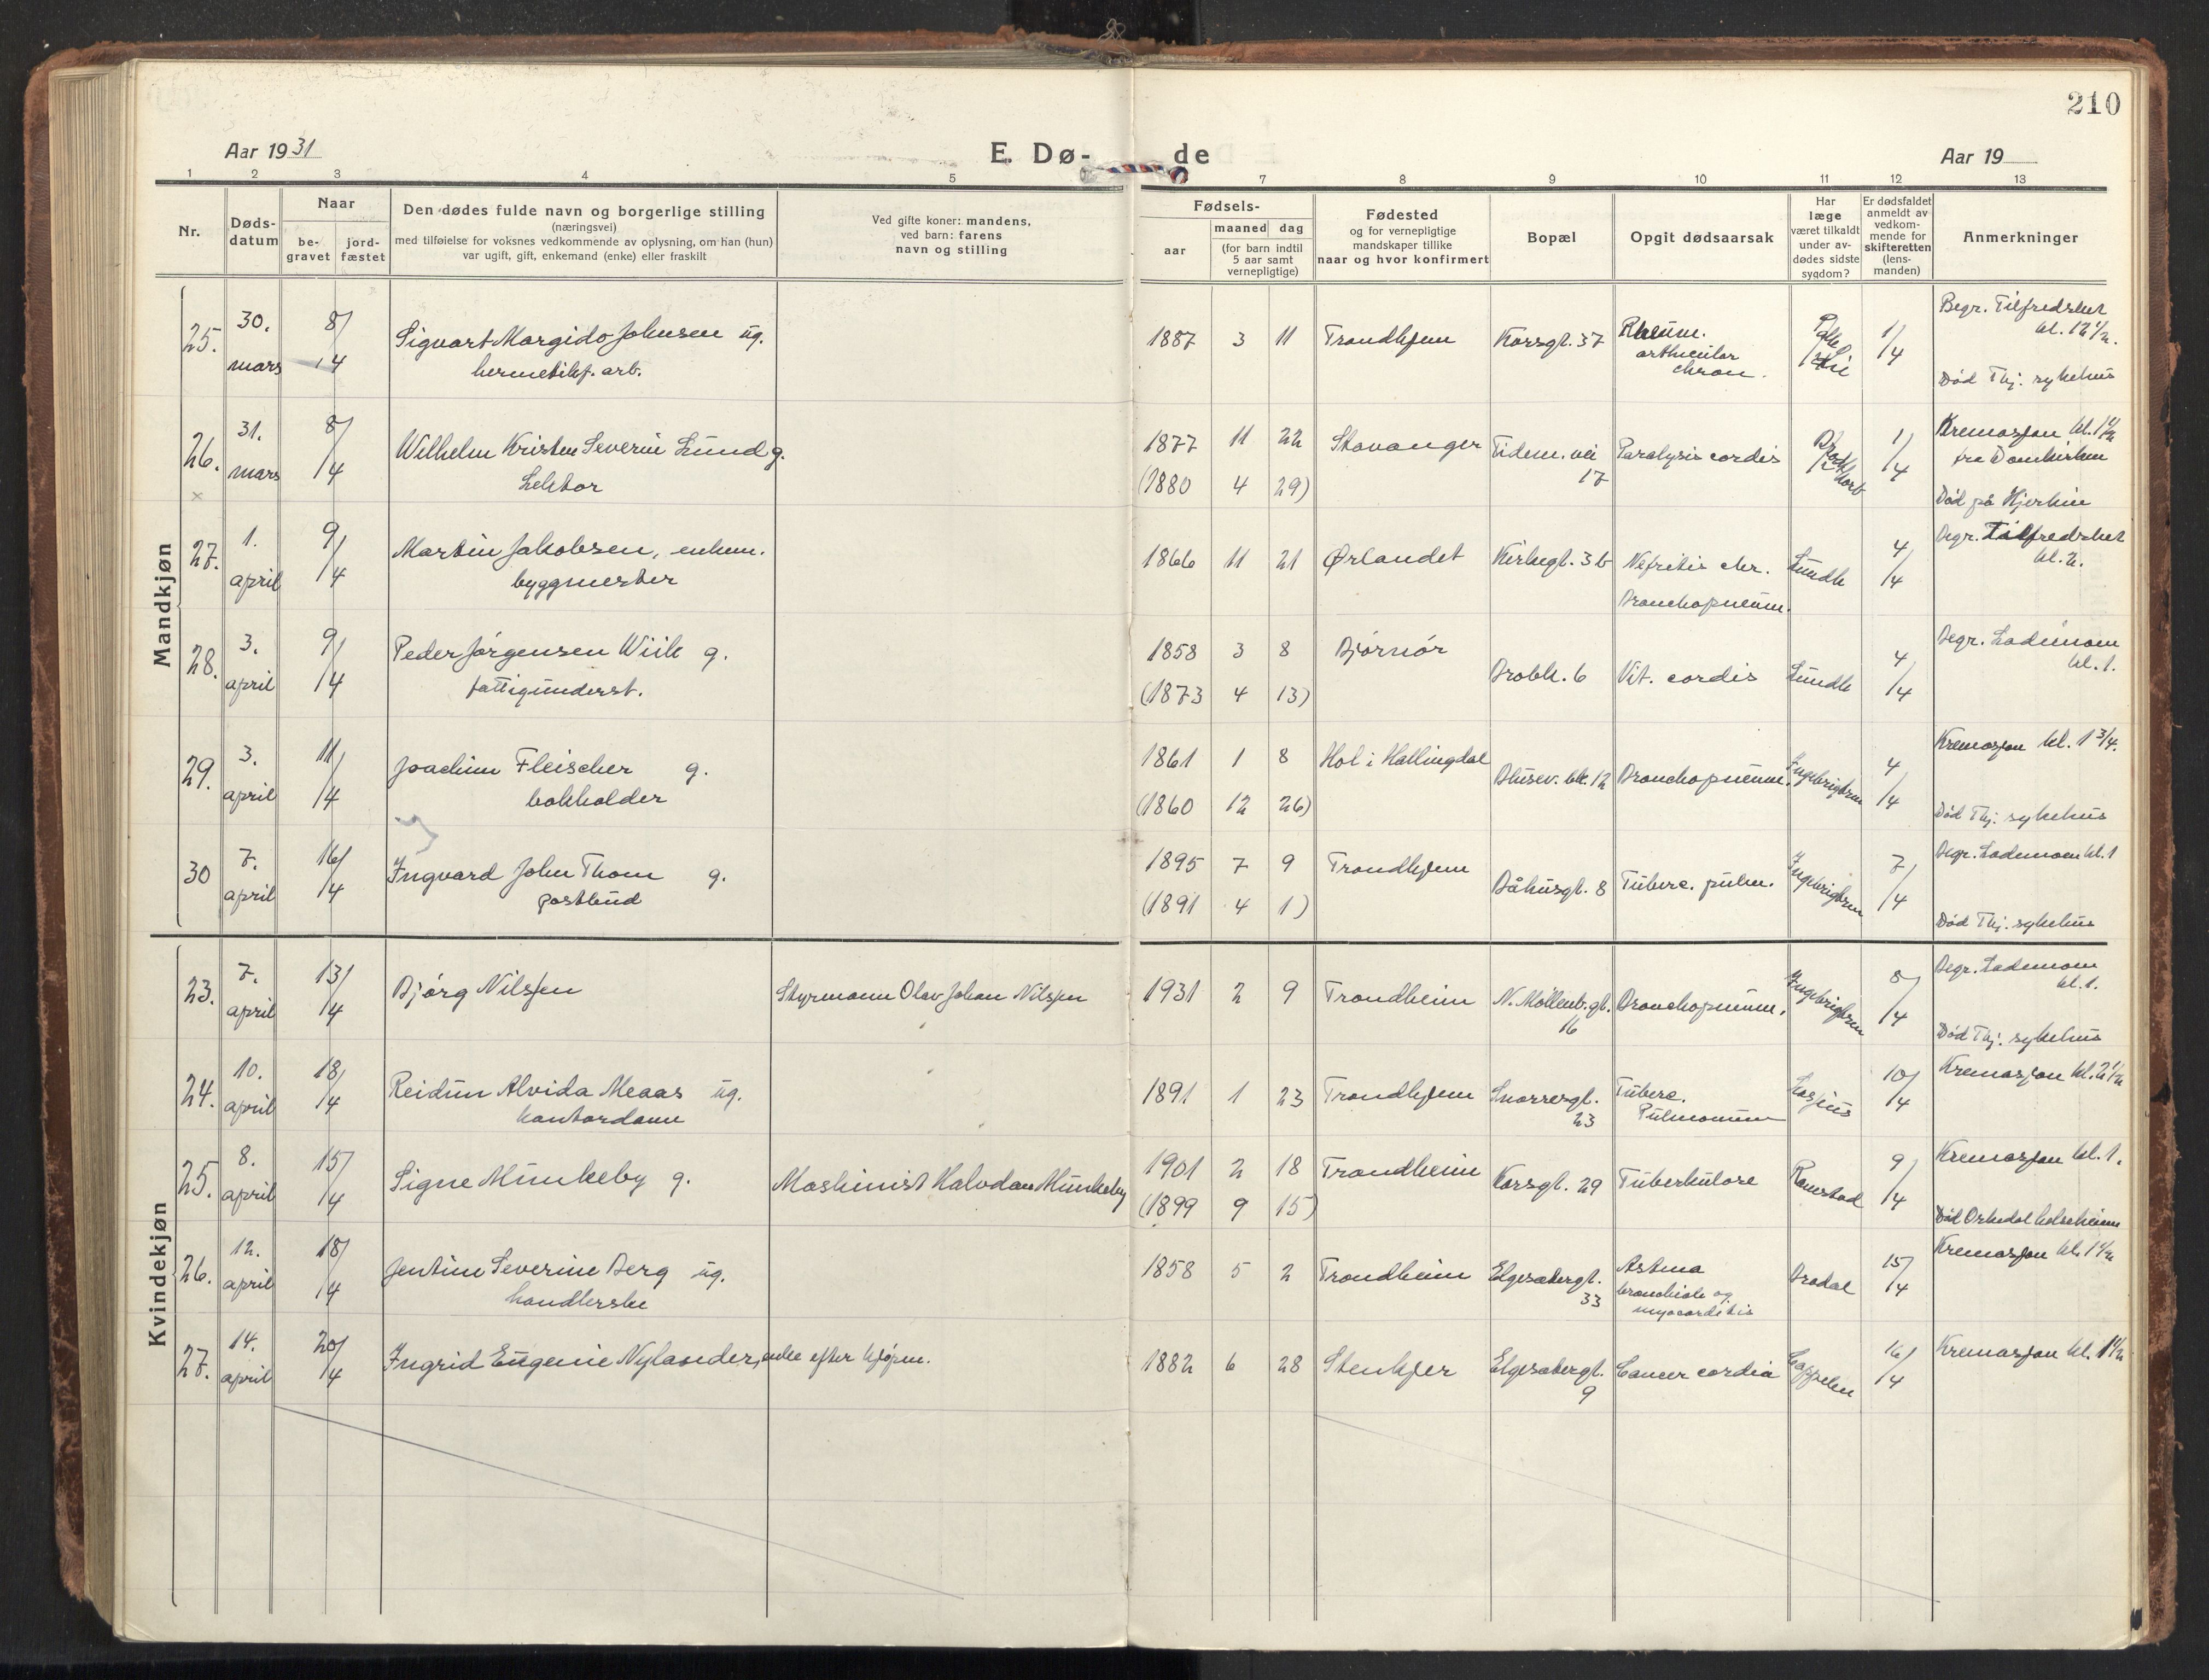 210
Aar 1931
E. Dø-
de
Aar 19
1 2 3 4 5 7 8 9 10 11 12 13
Nr.
Døds-
datum
Naar
be-
gravet
jord-
fæstet
Den dødes fulde navn og borgerlige stilling
(næringsvei)
med tilføielse for voksnes vedkommende av oplysning, om han (hun)
var ugift, gift, enkemand (enke) eller fraskilt
Ved gifte koner: mandens,
ved barn: farens
navn og stilling
Fødsels-
aar
maaned dag
(for barn indtil
5 aar samt
vernepligtige)
Fødested
og for vernepligtige
mandskaper tillike
naar og hvor konfirmert
Bopæl
Opgit dødsaarsak
Har
læge
været tilkaldt
under av-
dødes sidste
sygdom?
Er dødsfaldet
anmeldt av
vedkom-
mende for
skifteretten
(lens-
manden)
Anmerkninger
Mandkjøn
25. 30. mars 8/4 Sigvart Margido Johnsen ug.
hermetikf. arb.
1887 3 11 Trondhjem Korsgt. 37 Rheum.
chron.
1/4 Begr. Tilfredshet
kl. 12 1/2.
Død Thj. sykehus
26. 31. mars 8/4 Wilhelm Kristen Severin Lund g.
Lektor
1877 11 22 Stavanger Tidem. vei
17
Paralysis cordis 1/4 Kremasjon kl. 1 1/2
fra Domkirken
(1880 4 29)
Død på Hjerkin
27. 1. april 9/4 Martin Jakobsen, enkem.
byggmester
1866 11 21 Ørlandet Kirkegt. 3b Nefritis chr.
Bronchopneum.
Lundh 4/4 Begr. Tilfredshet
kl. 2.
28. 3. april 9/4 Peder Jørgensen Wiik g.
fattigunderst.
1858 3 8 Bjørnør
(1873 4 13)
Brobk. 6 Vit. cordis Lundh 4/4 Begr. Lademoen
kl. 1.
29. 3. april 11/4 Joachim Fleischer g.
bokholder
1861 1 8 Hol i Hallingdal
(1860 12 26)
Bronchopneum. Ingebrigtsen 4/4 Kremasjon kl. 1 3/4.
Død Thj. sykehus
30 7. april 16/4 Ingvard John Thom g.
postbud
1895 7 9 Trondhjem
(1891 4 1)
Båhusgt. 8 Tuberc. pulm. Ingebrigtsen 7/4 Begr. Lademoen kl. 1
Død Thj. sykehus
Kvindekjøn
23. 7. april 13/4 Bjørg Nilssen Styrmann Olav Johan Nilssen
1931 2 9 Trondheim N. Møllenb. gt.
16
Bronchopneum. Ingebrigtsen 8/4 Begr. Lademoen
kl. 1.
Død Thj. sykehus
24. 10. april 18/4 Reidun Alvida Meaas ug.
kontordame
1891 1 23 Trondhjem Snorregt.
23
Tuberc.
Pulmonum
10/4 Kremasjon kl. 2 1/2
25. 8. april 15/4 Signe Munkeby g. Maskinist Halvdan Munkeby
1901 2 18 Trondheim
(1899 9 15)
Korsgt. 29 Tuberkulose Ramstad 9/4 Kremasjon kl. 1.
Død Orkedal
26. 12. april 18/4 Jentine Severine Berg ug.
handlerske
1858 5 2 Trondheim Elgesætergt.
33
Astma
bronchiale og
myocarditis
Brodal 15/4 Kremasjon kl. 1 1/2
27. 14. april 20/4 Ingrid Eugenie Nylander, enke efter kjøpm.
1882 6 28 Stenkjer Elgesætergt.
9
Cancer cordia Cappelen 16/4 Kremasjon kl. 1 1/2